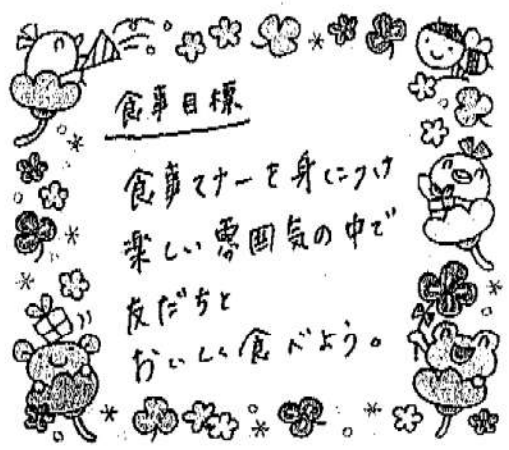 食事目標
食事マナーを身につけ
楽しい雰囲気の中で
友だちと
おいしく食べよう。